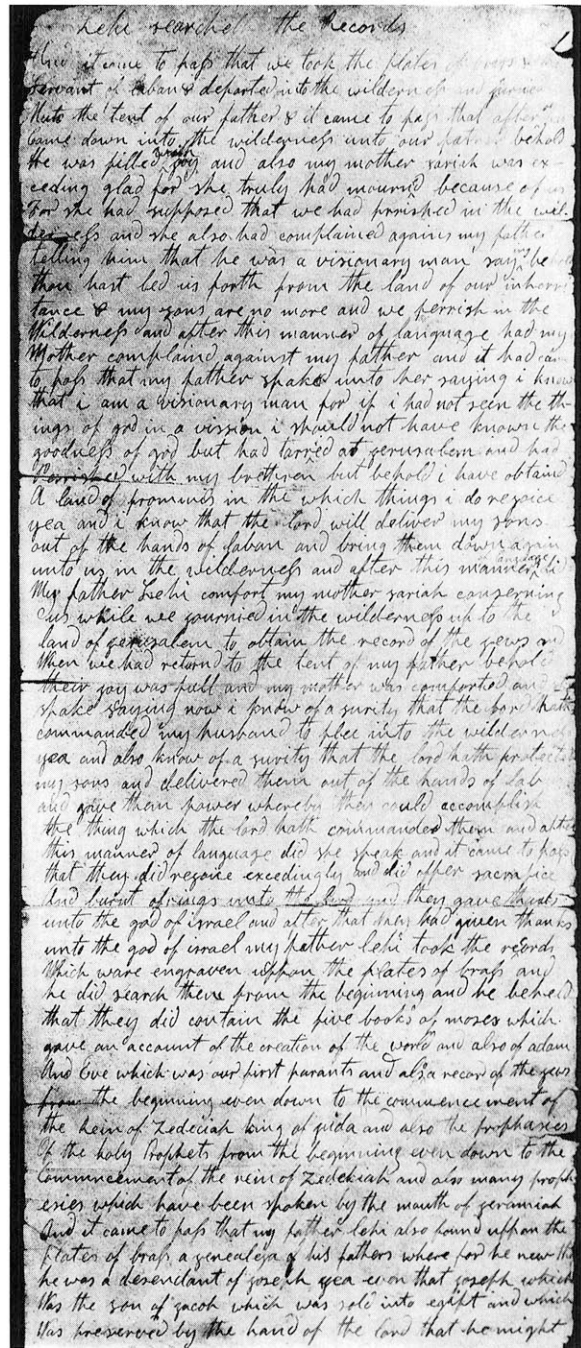 Lehi searches the Records
And it came to paſs that we took the plates of braſs &
servant of laban & departed into the wilderneſs and
unto the tent of our father & it came to paſs that after
came down into the wilderneſs unto our father behold
he was filled with joy and also my mother sariah was ex-
ceding glad for she truly had mournd because of us
For she had supposed that we had perrished in the wil-
derneſs and she also had complained agains my father
telling him that he was a visionary man saying behold
thou hast led us forth from the land of our inherri
tance & my sons are no more and we perrish in the
Wilderneſs and after this manner of language had my
Mother complaind against my father and it had came
to paſs that my father spake unto her saying i know
that i am a visionary man for if i had not seen the th-
ings of god in a vission i should not have known the
goodneſs of god but had tarried at gerusalem and had
Perrished with my brethren but behold i have obtaind
A land of prommis in the which things i do rejoice
yea and i know that the lord will deliver my sons
out of the hands of laban and bring them down again
unto us in the wilderneſs and after this manner language did
My father Lehi comfort my mother sariah conserning
us while we journied in the wilderneſs up to the
land of gerusalem to obtain the record of the gews and
When we had returnd to the tent of my father behold
their joy was full and my mother was comforted and she
spake saying now i know of a surity that the lord hath
commanded my husband to flee into the wilderneſs
yea and also know of a surity that the lord hath protected
my sons and delivered them out of the hands of lab
and gave them power whereby they could accomplish
the thing which the lord hath commanded them and after
this manner of language did she speak and it came to paſs
that they did rejoice exceedingly and did offer sacrafice
And burnt ofrings unto the lord and they gave thanks
unto the god of israel and after that they had given thanks
unto the god of israel my father lehi took the records
Which ware engraven uppon the plates of braſs and
he did search them from the beginning and he beheld
that they did contain the five books of moses which
gave an account of the creation of the world and also of adam
And Eve which was our first parants and also a recor of the gews
from the beginning even down to the commencement of
the rein of Zedeciah king of guda and also the prophasies
Of the holy Prophets from the beginning even down to the
Commncement of the rein of Zedekiah and also many proph
esies which have been spoken by the mouth of geramiah
And it came to paſs that my father lehi also found uppon the
plates of braſs a genealega of his fathers where for he new that
he was a desendant of goseph yea even that goseph which
Was the son of gacob which was sold into egipt and which
Was preserved by the hand of the lord that he might